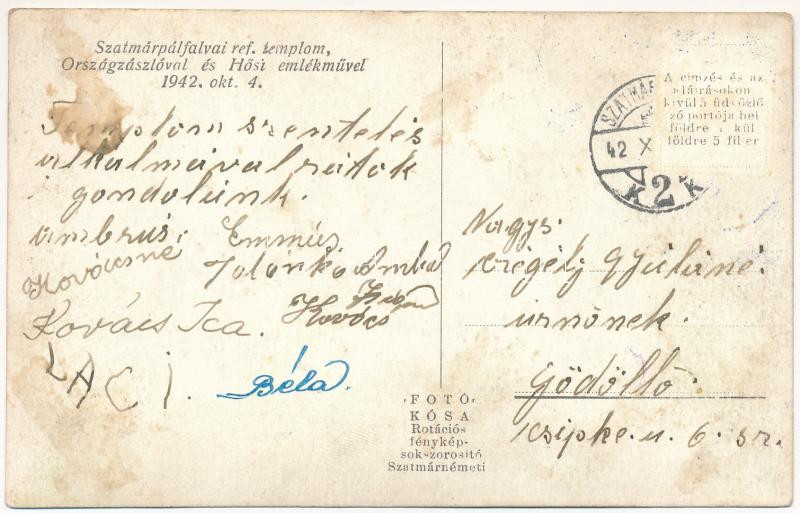 Szatmárpálfalvai ref. templom,
Országzászlóval és Hősi emlékművel
1942. okt. 4.
Templom szentelés
alkalmával rátok
gondolunk.
Ambrus. Emmus.
Kovácsné Jolánka
Kovács Ica. Kovács
LACI. Béla.
SZATMÁR
42 X
K 2 K
A címzés és az
aláírásokon
kívül 5 üdvözlő
szó portója bel
földre s kül
földre 5 fillér
Nagys.
Gyuláné
úrnőnek.
Gödöllő.
Csipke. u. 6. sz.
FOTÓ
KÓSA
Rotációs
fénykép-
sok-zorosító
Szatmárnémeti